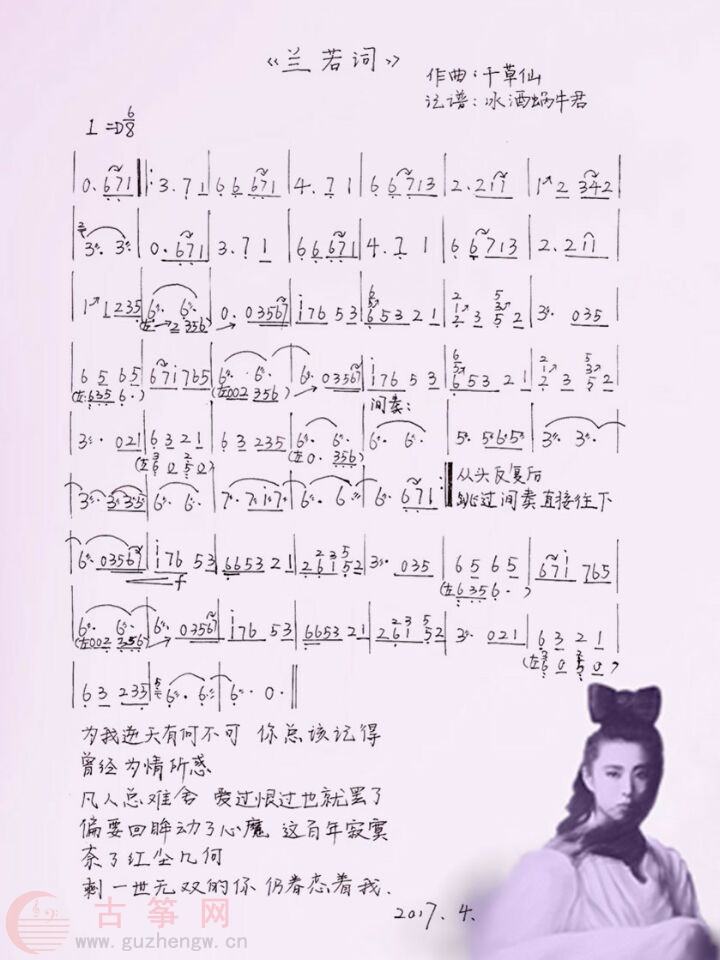 《兰若词》
作曲：千草仙
记谱：冰酒蜗牛君
1=D 6/8
0. 671 3. 71 6 6 671 4. 7 1 6 6 713 2. 217 1 2 342
3. 3. 0. 671 3. 7 1 6 6 671 4. 7 1 6 6 713 2. 217
1 1235 6. 6. 0. 03567 i76 53 653 21 2 3 5 2 3. 035
(左 2 356)
6 5 65 67i765 6. 6. 6. 03567 i76 53 653 21 2 3 5 2
(左:635 6. ) (左002 356)
间奏：
3. 021 6 3 21 6 3 235 6. 6. 6. 6. 5. 5.65 3. 3.
(左 (左0. 356)
3. 335 6. 6. 7. 7i7 6. 6. 6. 671 从头反复后
跳过间奏直接往下
6. 03567 i76 53 6653 21 26152 3. 035 6 5 65 67i 765
f
(左6356. )
6. 6. 6. 03567 i76 53 6653 21 261 52 3. 021 6 3 2 1
(左002 256)
6 3 235 6. 6. 6. 0.
为我逆天有何不可 你总该记得
曾经为情所惑
凡人总难舍 爱过恨过也就罢了
偏要回眸动了心魔 这百年寂寞
奈了红尘几何
剩一世无双的你 仍眷恋着我.
2017. 4.
古筝网
www.guzhengw.cn